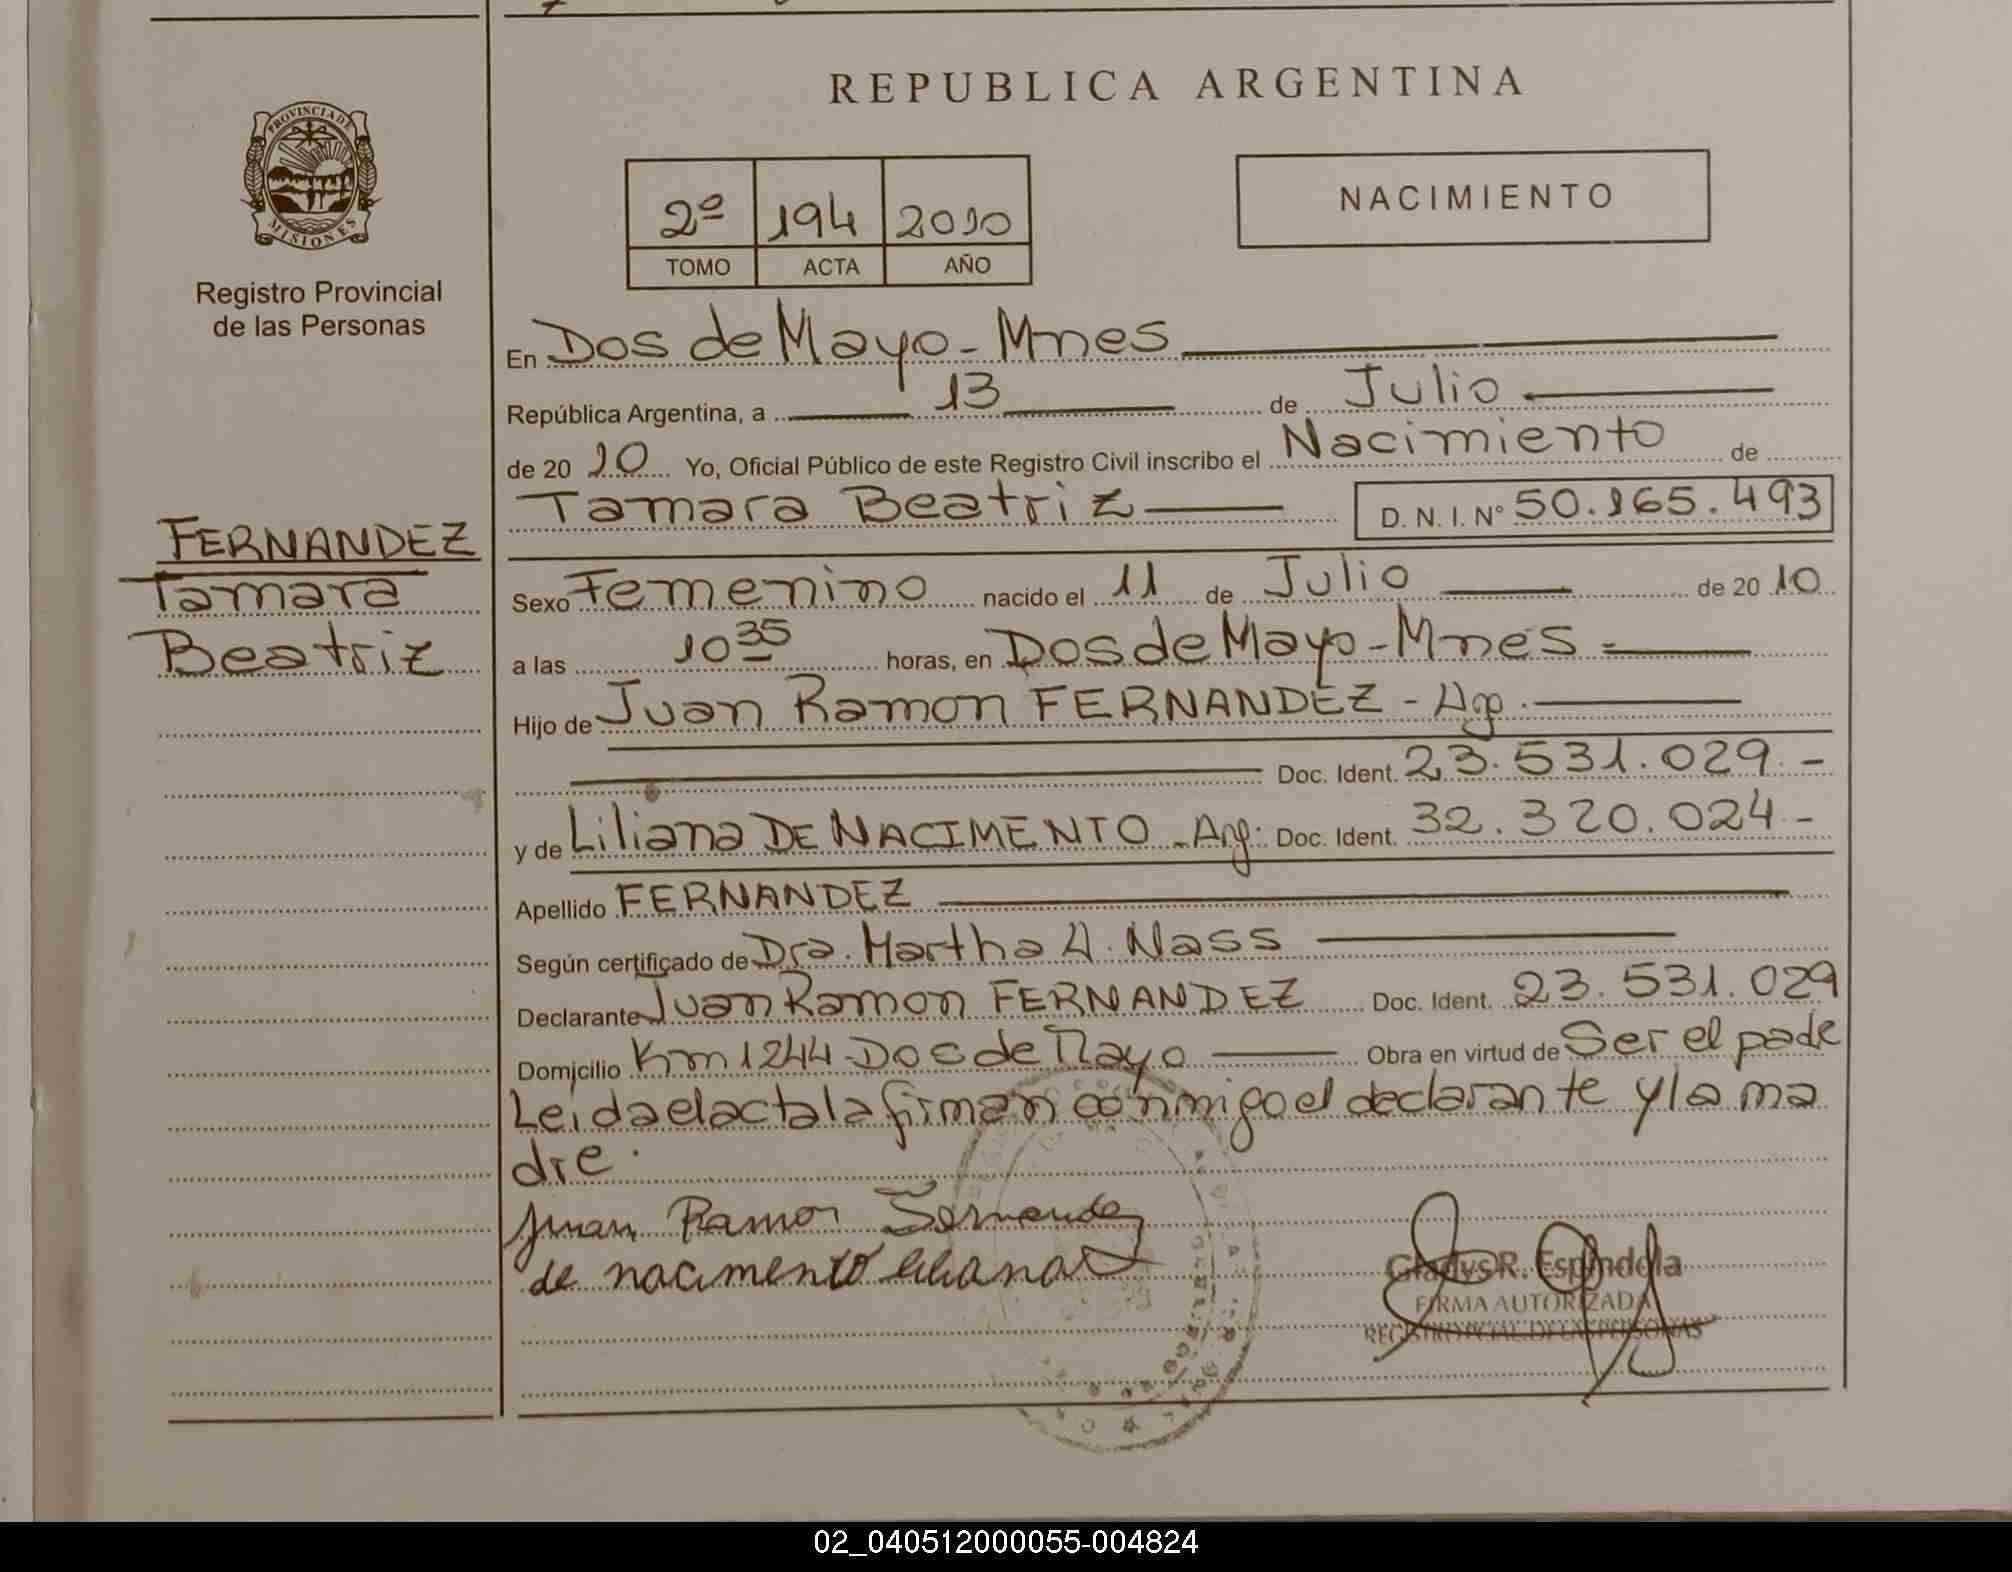 REPUBLICA ARGENTINA
PROVINCIA DE
MISIONES
Registro Provincial
de las Personas
2º 194 2010
TOMO ACTA AÑO
NACIMIENTO
En Dos de Mayo - Mnes
República Argentina, a 13 de Julio
de 20 10 Yo, Oficial Público de este Registro Civil inscribo el Nacimiento de
Tamara Beatriz D. N. I. N° 50.165.493
FERNANDEZ
Tamara
Beatriz
Sexo Femenino nacido el 11 de Julio de 20 10
a las 10 35 horas, en Dos de Mayo - Mnes
Hijo de Juan Ramon FERNANDEZ - Arg.
Doc. Ident. 23.531.029.-
y de Liliana DE NACIMENTO - Arg: Doc. Ident. 32.320.024.-
Apellido FERNANDEZ
Según certificado de Dra. Martha A. Nass
Declarante Juan Ramon FERNANDEZ Doc. Ident. 23.531.029
Domicilio Km 1244 - Dos de Mayo Obra en virtud de Ser el padre
Leida el acta la firman conmigo el declarante y la ma
dre.
Juan Ramon Fernandez
de nacimento liliana
Gladys R. Espindola
FIRMA AUTORIZADA
REGISTRO PCIAL. DE LAS PERSONAS
02_040512000055-004824